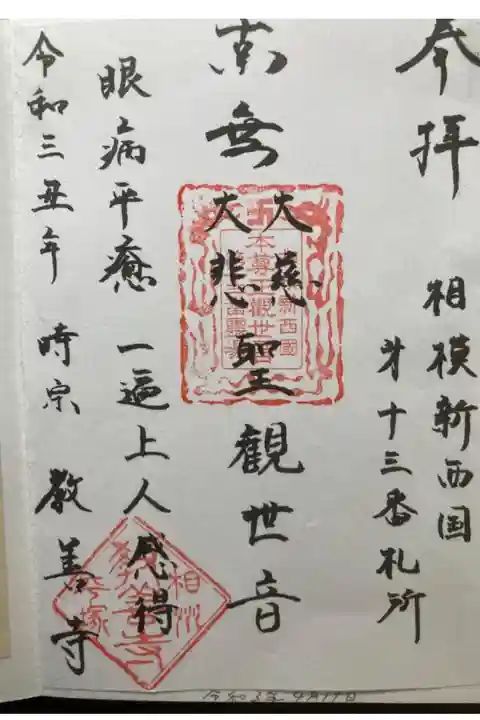 奉拝
相模新西国
才十三番札所
南無
大慈
大悲
聖観世音
眼病平癒 一遍上人感得
令和三丑年 時宗 教善寺
相州
教善寺
令和3年4月17日